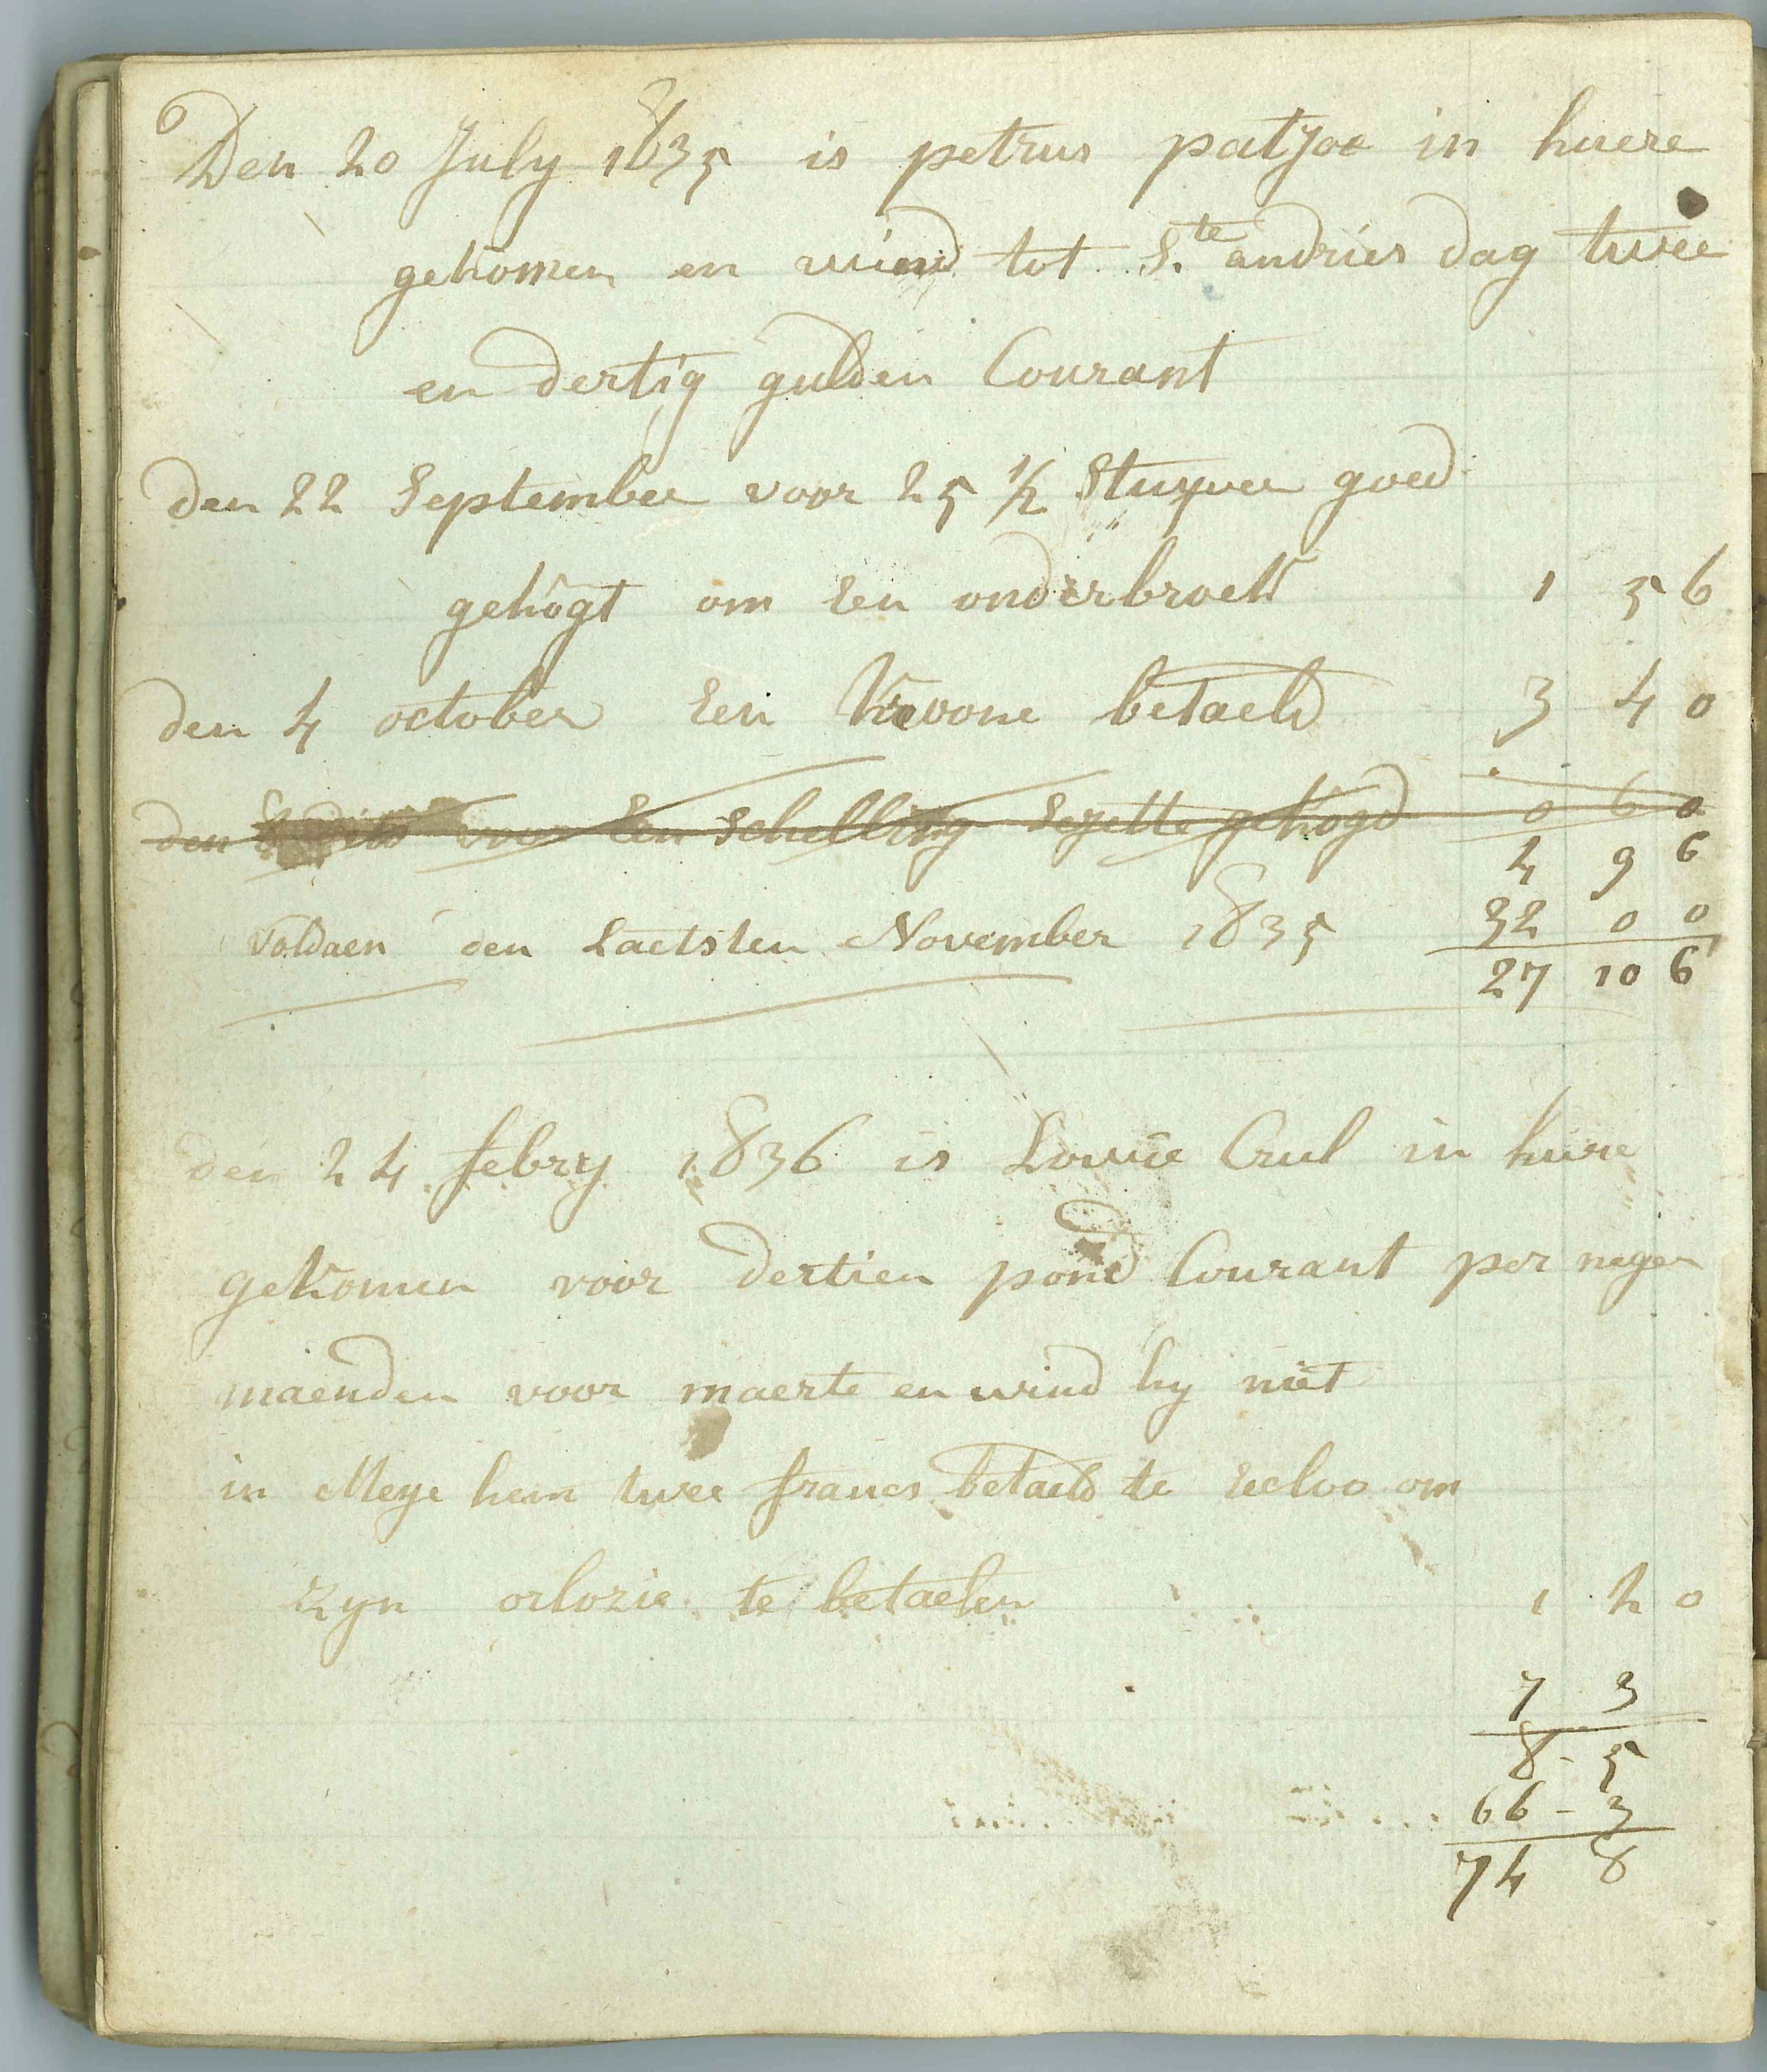 Den 20 July 1835 is petrus patjoe in huere
gekomen en wind tot S.te andries dag twee
en dertig gulden Courant
den 22 September voor 25 1/2 Stuyver goed
gekogt om een onderbroek 1 5 6
den 4 october een kroone betaeld 3 4 0
den voor een schelling sejette gekogd 0 6 0
4 9 6
voldaen den Laetsten November 1835 32 0 0
27 10 6
den 24 febry 1836 is Lowie Crul in huire
gekomen voor dertien pond Courant per negen
maenden voor maerte en wind hy niet
in Meye hem twee francs betaeld te Eecloo om
zyn orlozie te betaelen 1 2 0
7 3
8 - 5
66 - 3
74 8